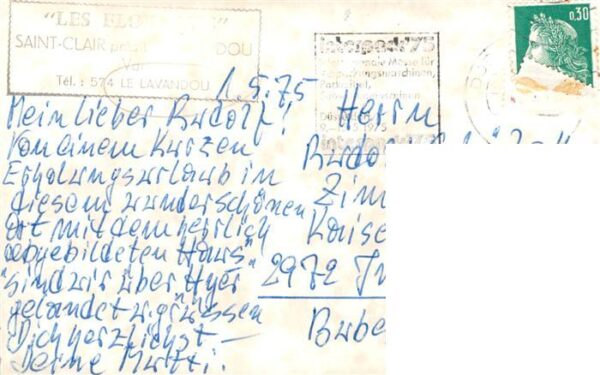 "LES FLO
SAINT-CLAIR DOU
Tél. : 574 LE LAVANDOU
interpack 75
Internationale Messe für
Verpackungsmaschinen,
Packmittel,
Süßwarenmaschinen
Düsseldorf
1975
interpack
0,30
1.5.75
Mein lieber Rudolf!
Von einem kurzen
Erholungsurlaub in
diesem wunderschönen
Ort mit dem herrlich
abgebildeten Haus"
"sind wir über Hyer
gelandet u. grüssen
Dich herzlichst –
Deine Mutti.
Herrn
Rudo
Zim
Kaise
2972
Bube